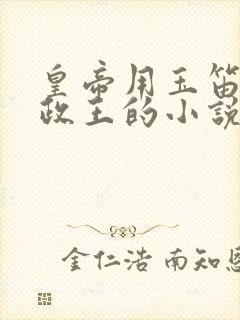 皇帝用玉笛
政王的小說
金仁浩 南知恩